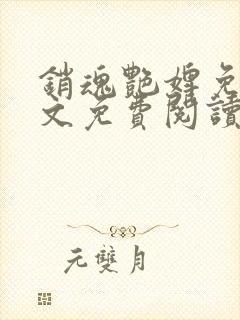 銷魂艷婢免
文免費閱讀
元雙月